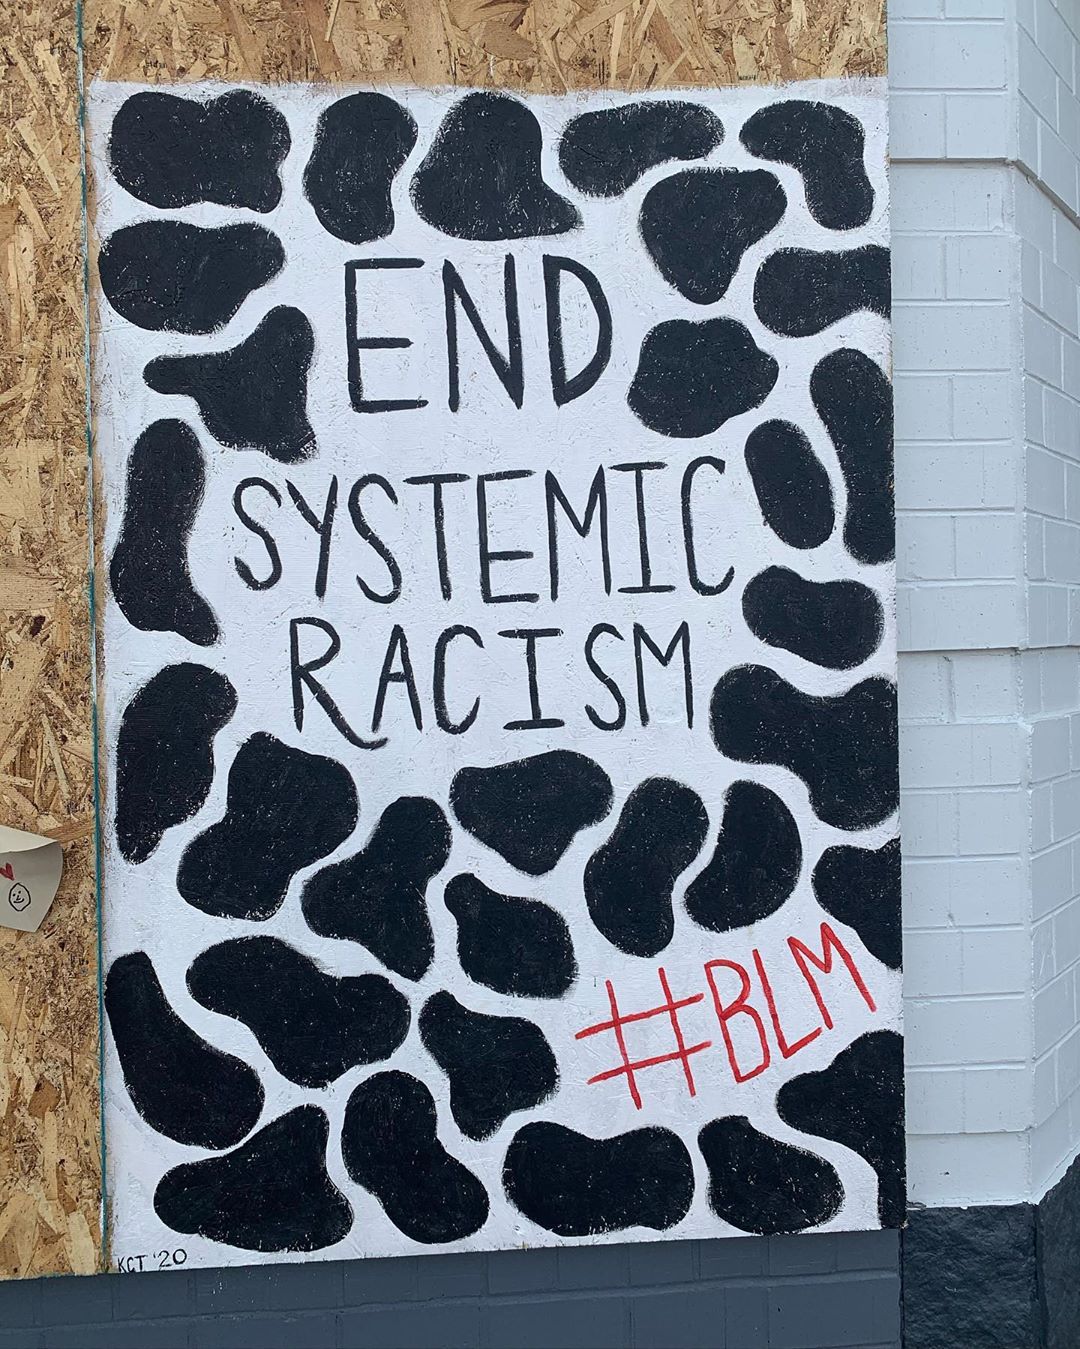 END
SYSTEMIC
RACISM
#BLM
KCT '20